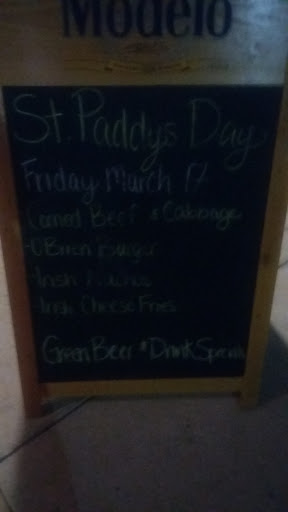 Modelo
St. Paddys Day
Friday March 17
Corned Beef & Cabbage
-O'Brien Burger
-Irish Nachos
-Irish Cheese Fries
Green Beer * Drink Specials